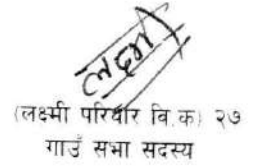 लक्ष्मी
(लक्ष्मी परियार वि.क) २७
गाउँ सभा सदस्य